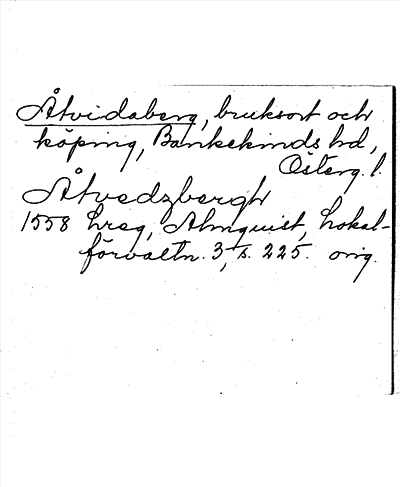 Åtvidaberg, bruksort och
köping, Bankekinds hd,
Österg. l.
Åtvedzbergh
1558 hreg, Almquist, Lokal-
förvaltn. 3, s. 225. orig.